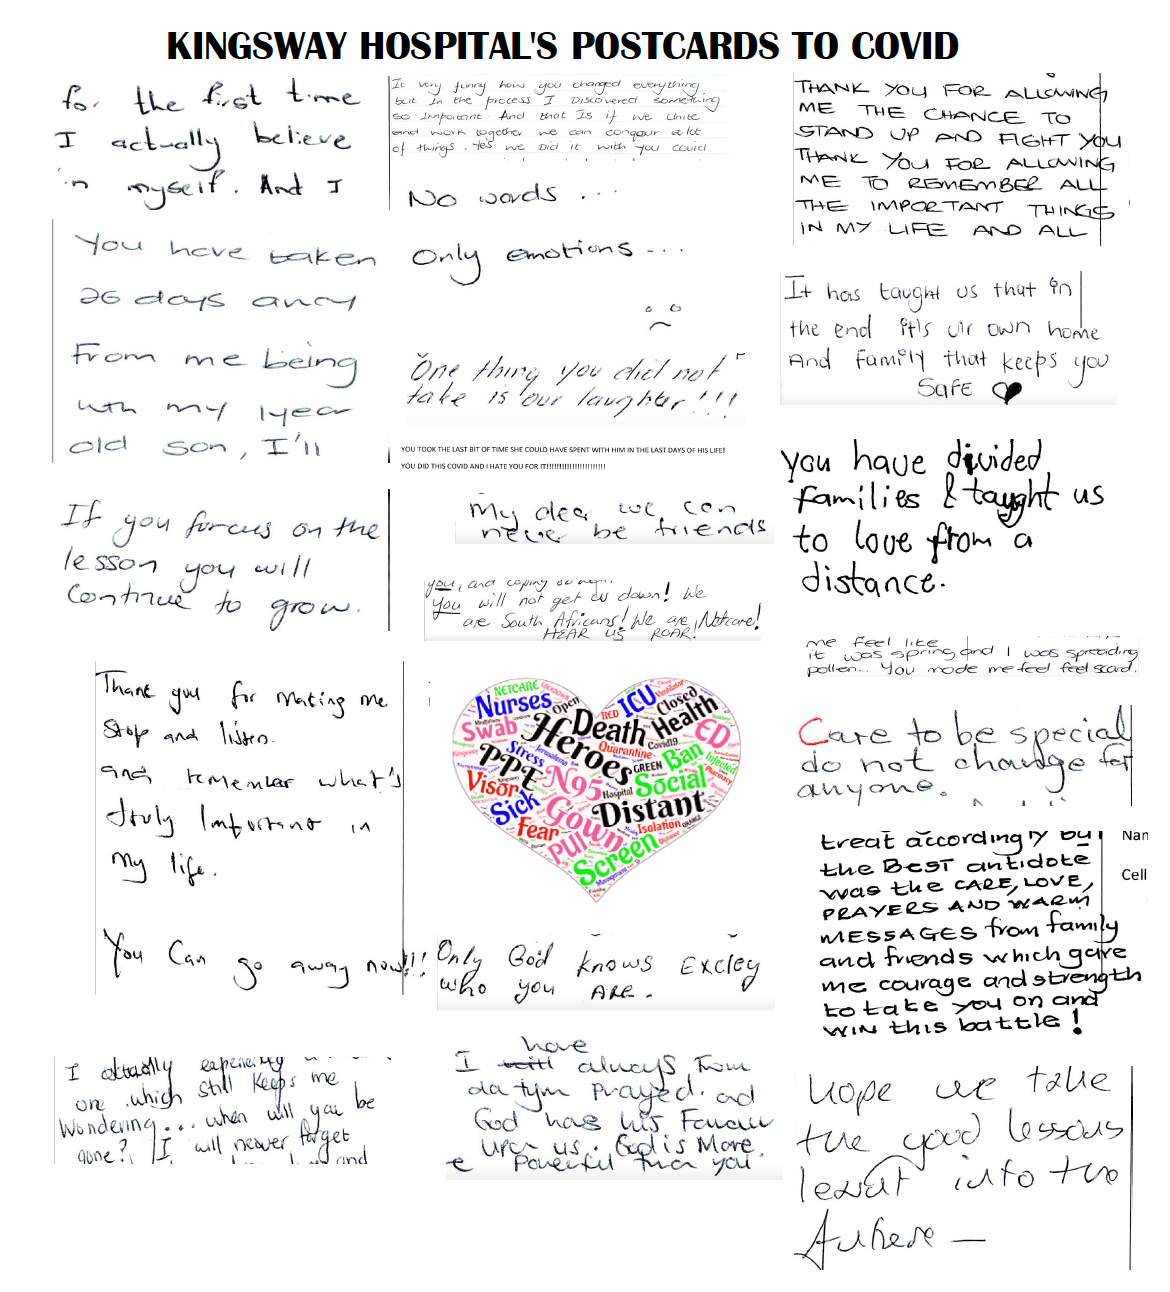 KINGSWAY HOSPITAL'S POSTCARDS TO COVID
for the first time
I actually believe
in myself. And I
You have taken
26 days away
from me being
with my 1 year
old son, I'll
If you forcus on the
lesson you will
Continue to grow.
Thank you for making me
Stop and listen.
and remember what's
truly Important in
my life.
You Can go away now!!!
I actually experiencing
one which still keeps me
Wondering... when will you be
gone? I will neaver forget
It very funny how you changed everything
but in the process I Discovered something
so Important. And that Is if we Unite
and work together we can conquour alot
of things. Yes we Did it with you covid
No words ...
Only emotions ...
One thing you did not
take is our laughter!!!
YOU TOOK THE LAST BIT OF TIME SHE COULD HAVE SPENT WITH HIM IN THE LAST DAYS OF HIS LIFE!
YOU DID THIS COVID AND I HATE YOU FOR IT!!!!!!!!!!!!!!!!!!!!!!!!
My dear we can
never be friends
you, and coping
You will not get us down! We
are South Africans! We are Netcare!
HEAR US ROAR!
NETCARE
Nurses
Open
Death
RED
ICU
Ventilator
Closed
Health
ED
Swab
Heroes
Quarantine
Covid19
Stress
PPE
N95
GREEN
Ban
Infected
Pharmacy
Visor
Hospital
Social
Sick
Gown
Distant
Fear
PUI
Isolation
ORANGE
Screen
Management
Only God knows Excley
who you ARE.
have
I will always from
da tym Prayed. and
God has his Favour
upon us. God is More
e Powerful than you
THANK YOU FOR ALLOWING
ME THE CHANCE TO
STAND UP AND FIGHT YOU
THANK YOU FOR ALLOWING
ME TO REMEMBER ALL
THE IMPORTANT THINGS
IN MY LIFE AND ALL
It has taught us that in
the end it's ur own home
And family that keeps you
Safe
you have divided
families & taught us
to love from a
distance.
me feel like
it was spring and I was spreading
pollen... You made me feel feel scard.
Care to be special
do not change for
anyone.
treat accordingly but
the BEST antidote
was the CARE, LOVE,
PRAYERS AND WARM
MESSAGES from family
and friends which gave
me courage and strength
to take you on and
WIN this battle!
Nan
Cell
Hope we take
the good lessons
learnt into the
future —